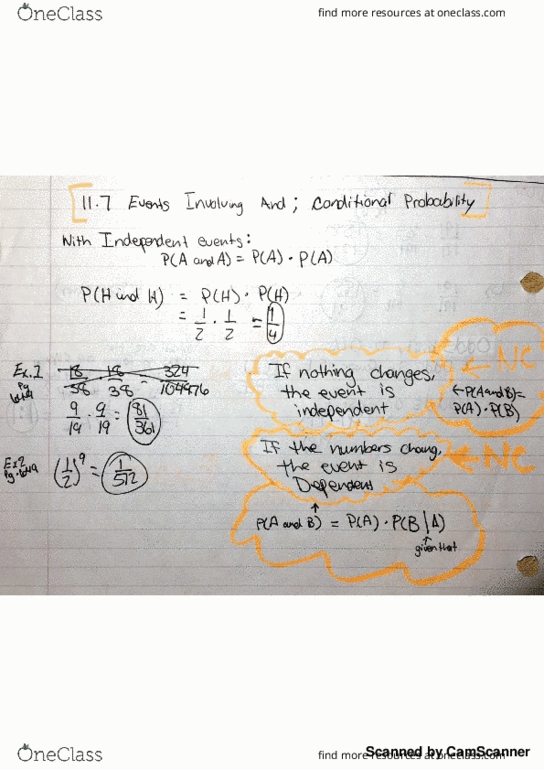 OneClass
find more resources at oneclass.com
11.7 Events Involving And; Conditional Probability
With Independent events:
P(A and A) = P(A) · P(A)
P(H and H) = P(H) · P(H)
= 1/2 · 1/2 = 1/4
Ex. 1
18/38 · 18/38 =
Pg
9/19 · 9/19 = 81/361
Ex 2
(1/2)^9 = 1/512
If nothing changes,
the event is
independent
← NC
← P(A and B) =
P(A) · P(B)
If the numbers chang,
the event is
Dependent
← NC
P(A and B) = P(A) · P(B | A)
given that
OneClass
find more resources at oneclass.com
Scanned by CamScanner